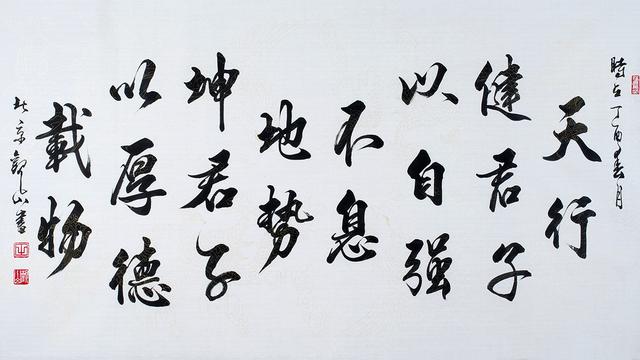 時在丁酉春月
天行
健君子
以自强
不息
地势
坤君子
以厚德
載物
北京観山書